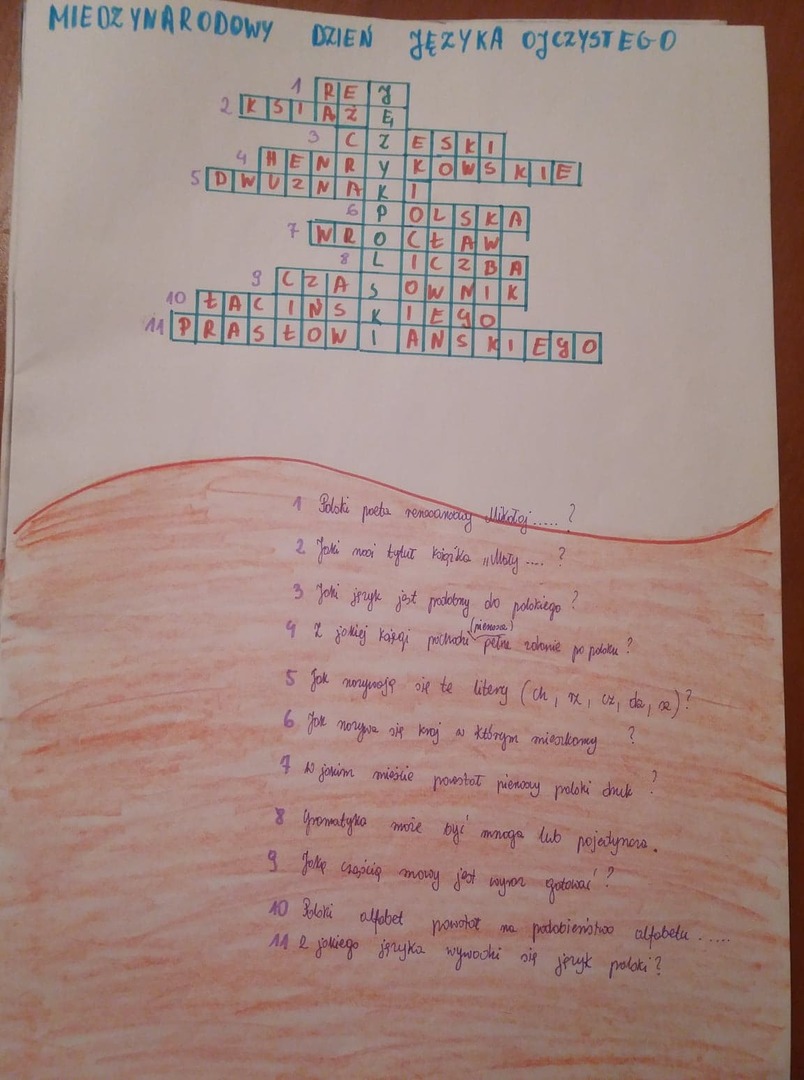 MIEDZYNARODOWY DZIEŃ JĘZYKA OJCZYSTEGO
1 REJ
2 KSIĄŻĘ
3 CZESKI
4 HENRYKOWSKIE
5 DWUZNAKI
6 POLSKA
7 WROCŁAW
8 LICZBA
9 CZASOWNIK
10 ŁACIŃSKIEGO
11 PRASŁOWIAŃSKIEGO
1 Polski poeta renesansowy Mikołaj.....?
2 Jaki nosi tytuł książka „Mały ....?
3 Jaki język jest podobny do polskiego?
4 Z jakiej księgi pochodzi (pierwsze) pełne zdanie po polsku?
5 Jak nazywają się te litery (ch, rz, cz, dz, sz)?
6 Jak nazywa się kraj w którym mieszkamy ?
7 W jakim mieście powstał pierwszy polski druk ?
8 Gramatyka może być mnoga lub pojedyncza.
9 Jaką częścią mowy jest wyraz gotować?
10 Polski alfabet powstał na podobieństwo alfabetu .....
11 Z jakiego języka wywodzi się język polski?